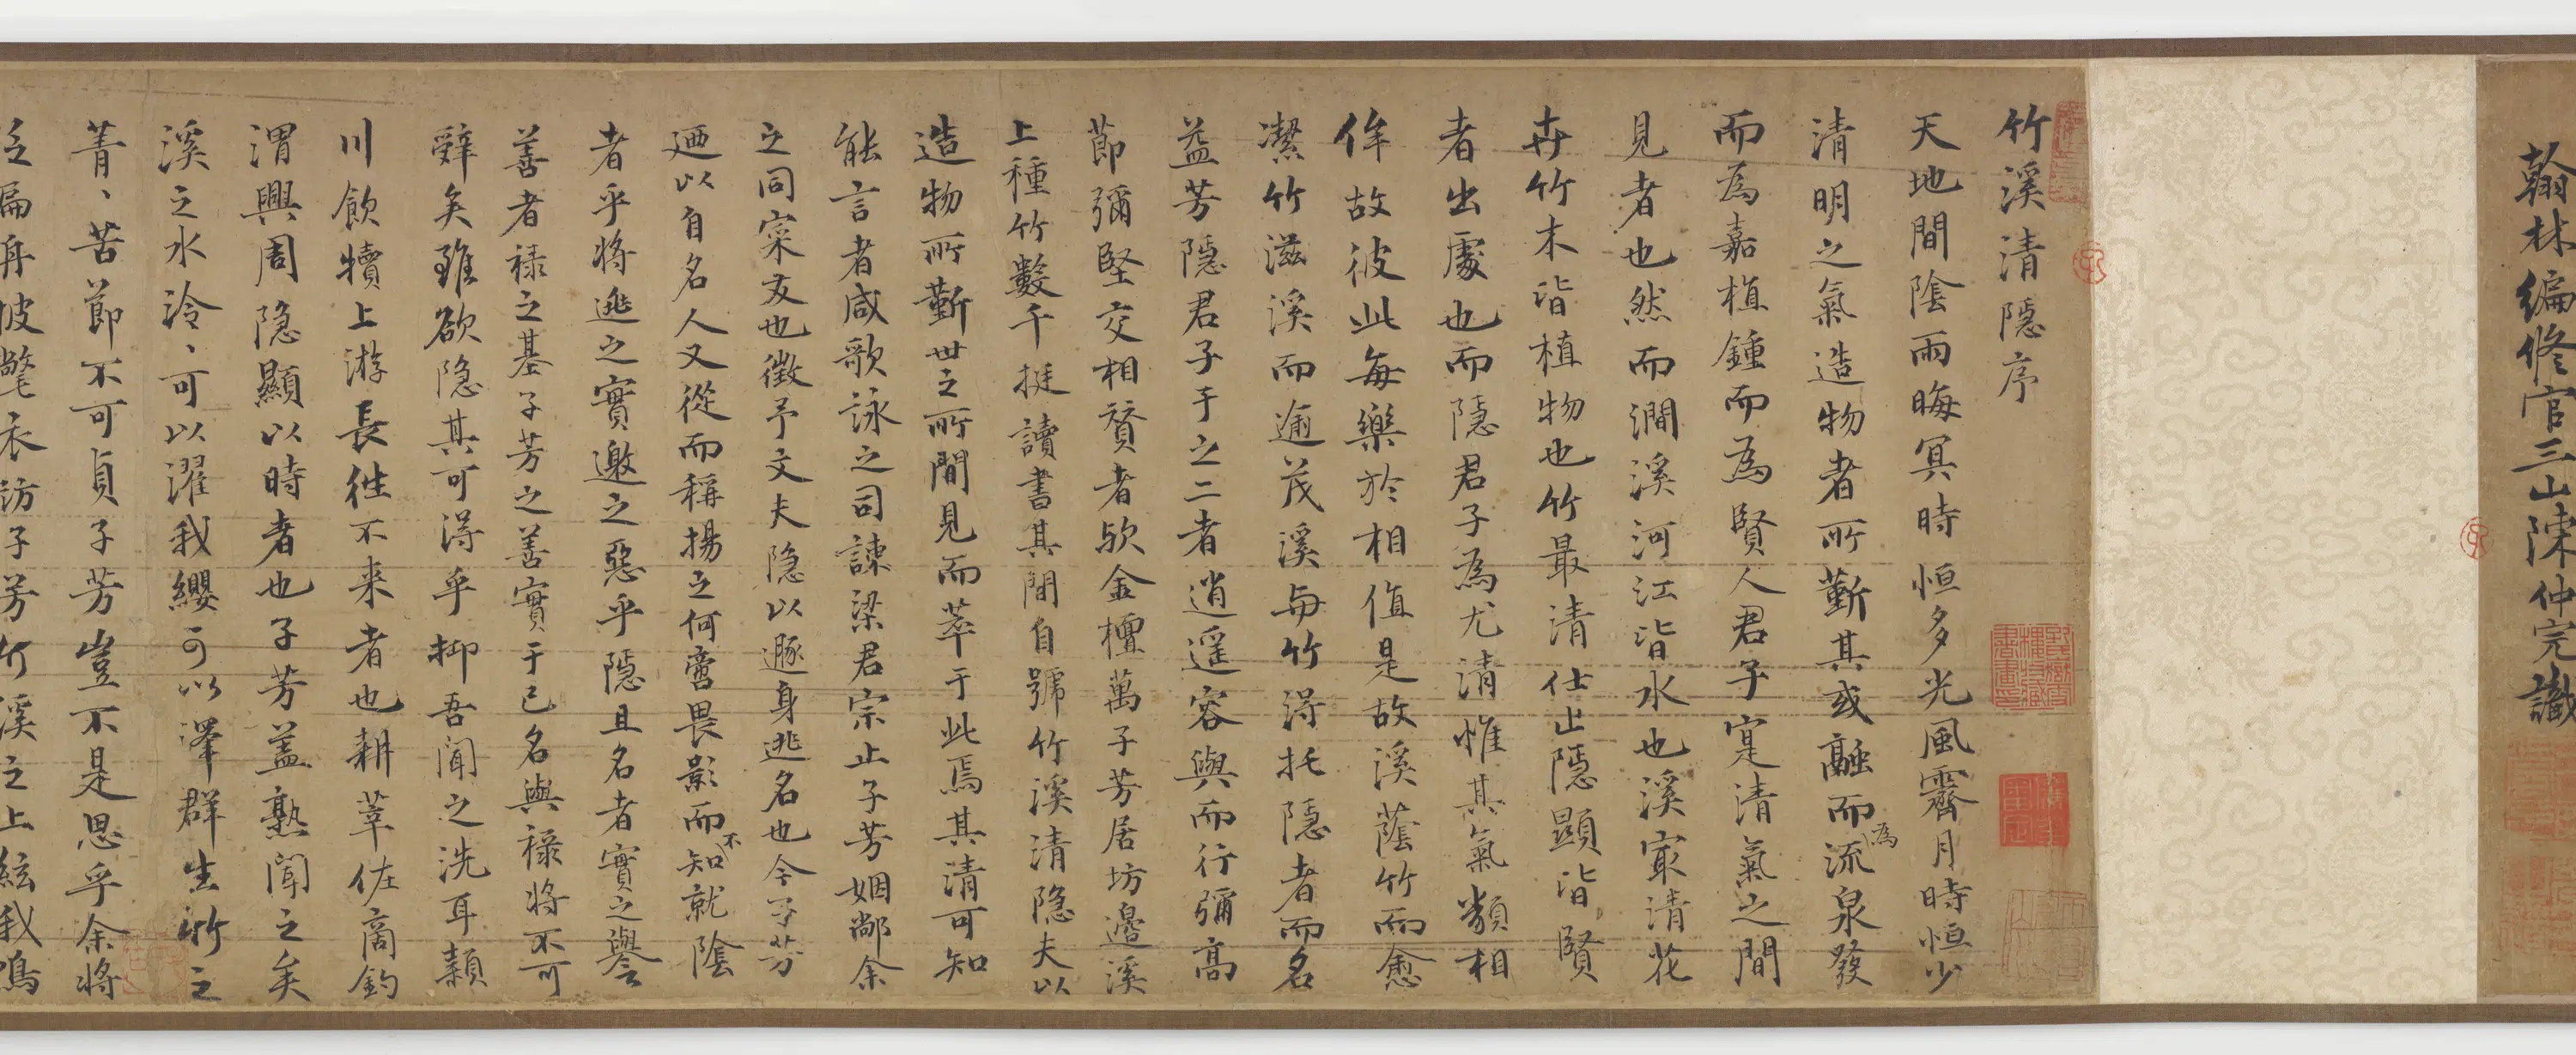 翰林編修官三山陳仲完識
竹溪清隱序
天地間陰雨晦冥時恒多光風霽月時恒少
清明之氣造物者所蘄其或融而為流泉發
而為嘉植鍾而為賢人君子寔清氣之間
見者也然而澗溪河江皆水也溪寂清花
卉竹木皆植物也竹最清仕止隱顯皆賢
者出處也而隱君子為尤清惟其氣類相
侔故彼此每樂於相值是故溪蔭竹而愈
潔竹滋溪而逾茂溪與竹得托隱者而名
益芳隱君子于之二者逍遥容與而行彌高
節彌堅交相資者歟金檀萬子芳居坊邊溪
上種竹數千挺讀書其間自號竹溪清隐夫以
造物所蘄世之所間見而萃于此焉其清可知
能言者咸歌詠之司諫梁君宗止子芳姻鄰余
之同寀友也徵予文夫隐以遯身逃名也今子芳
廼以自名人又從而稱揚之何啻畏影而不知就陰
者乎將逃之實邀之惡乎隱且名者實之譽
善者禄之基子芳之善實于己名與禄將不可
辭矣雖欲隐其可得乎抑吾聞之洗耳潁
川飲犢上游長往不来者也耕莘佐商釣
渭興周隐顯以時者也子芳盖熟聞之矣
溪之水泠、可以濯我纓可以澤群生竹之
菁、苦節不可貞子芳豈不是思乎余將
泛扁舟披氅衣訪子芳竹溪之上絃我鳴